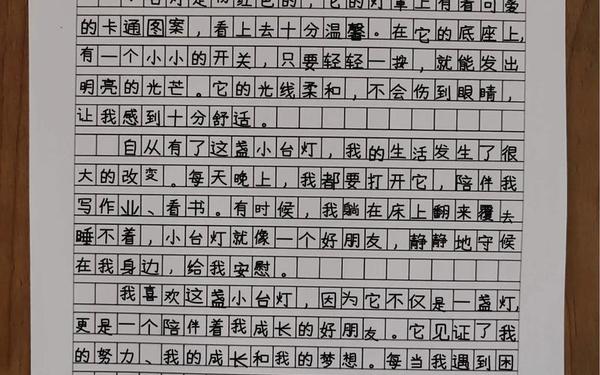 小台灯是粉红色的，它的灯罩上有着可爱
的卡通图案，看上去十分温馨。在它的底座上，
有一个小小的开关，只要轻轻一按，就能发出
明亮的光芒。它的光线柔和，不会伤到眼睛，
让我感到十分舒适。
自从有了这盏小台灯，我的生活发生了很
大的改变。每天晚上，我都要打开它，陪伴我
写作业、看书。有时候，我躺在床上翻来覆去
睡不着，小台灯就像一个好朋友，静静地守候
在我身边，给我安慰。
我喜欢这盏小台灯，因为它不仅是一盏灯，
更是一个陪伴着我成长的好朋友。它见证了我
的努力、我的成长和我的梦想。每当我遇到困